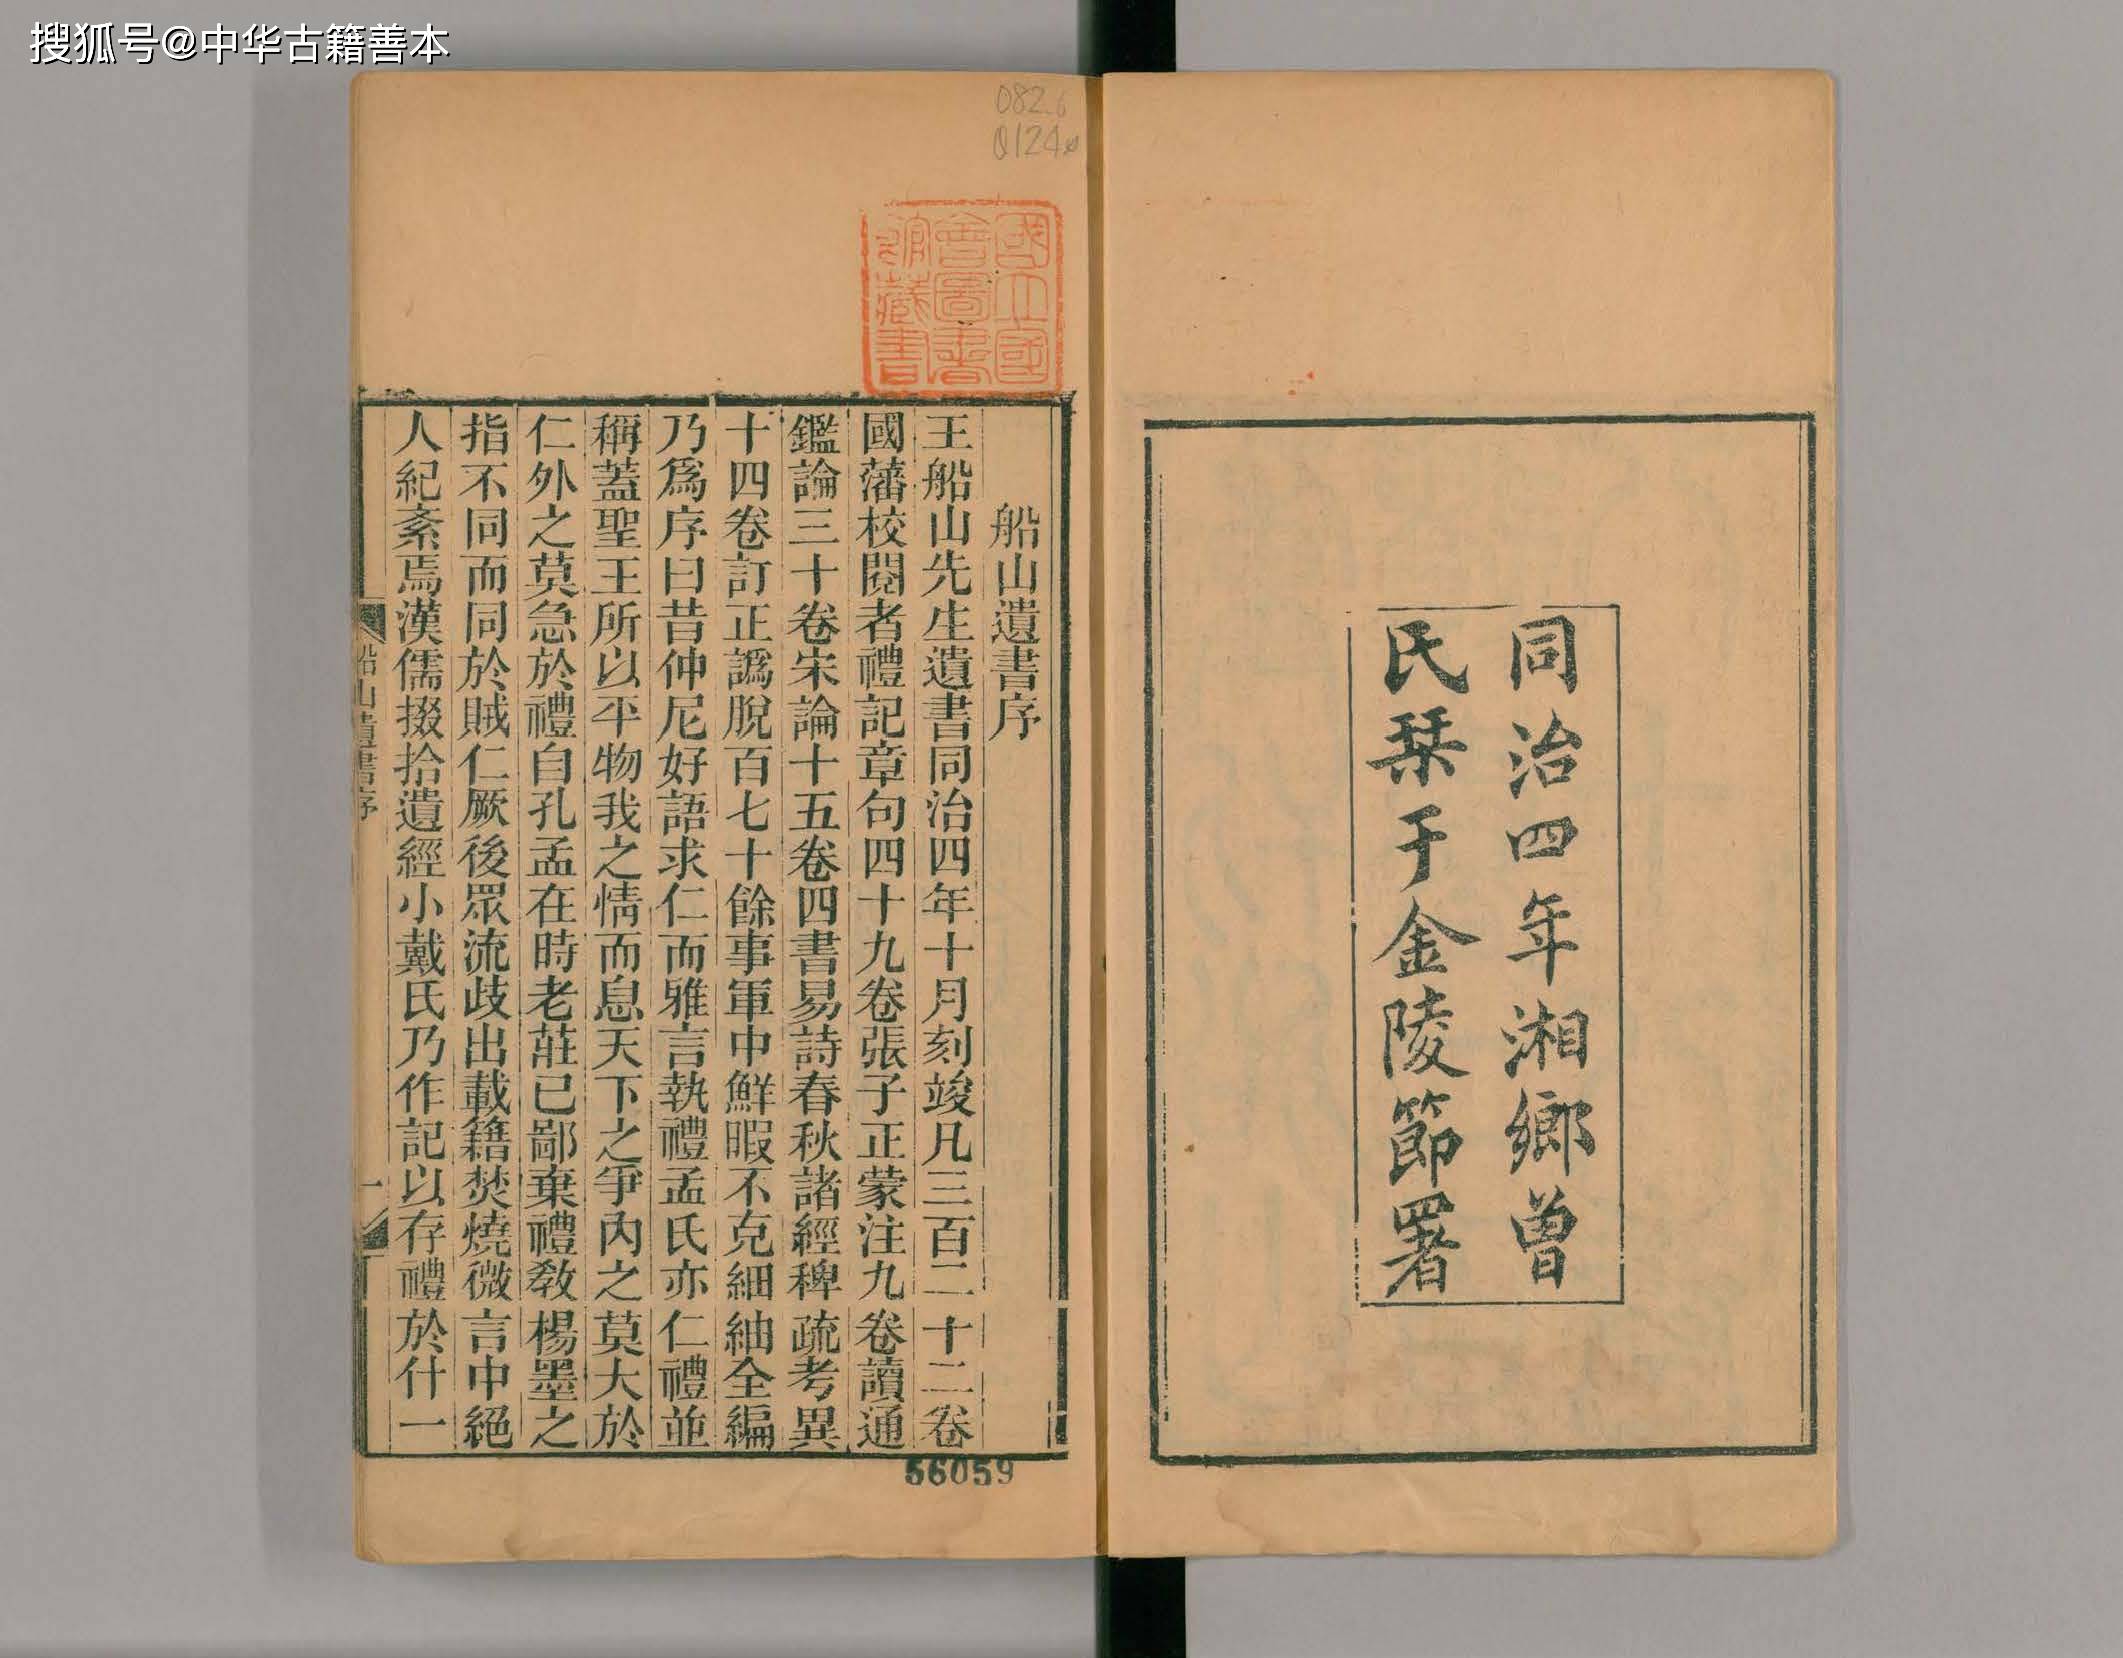 搜狐号@中华古籍善本
同治四年湘鄉曾
氏栞于金陵節署
082.6
國立國
會圖書
館藏書
船山遺書序
王船山先生遺書同治四年十月刻竣凡三百二十二卷
國藩校閱者禮記章句四十九卷張子正蒙注九卷讀通
鑑論三十卷宋論十五卷四書易詩春秋諸經稗疏考異
十四卷訂正譌脫百七十餘事軍中鮮暇不克細紬全編
乃爲序曰昔仲尼好語求仁而雅言執禮孟氏亦仁禮並
稱蓋聖王所以平物我之情而息天下之爭內之莫大於
仁外之莫急於禮自孔孟在時老莊已鄙棄禮教楊墨之
指不同而同於賊仁厥後眾流歧出載籍焚燒微言中絕
人紀紊焉漢儒掇拾遺經小戴氏乃作記以存禮於什一
船山遺書序
一
56059